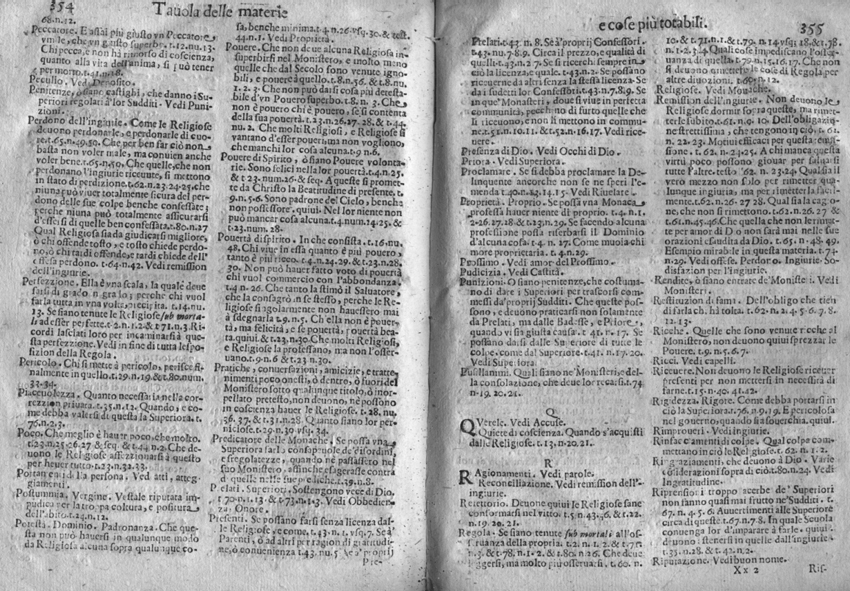 354 Tauola delle materie
68. n. 12.
Peccatore. E assai più giusto vn Peccatore
vmile, che vn giusto superbo. t. 12. nu. 13.
Chi pecca, e non hà rimorso di coscienza,
quanto alla vita dell'anima, si può tener
per morto. t. 41. n. 18.
Peculio. Ved. Deposito.
Penitenze, ò siano castighi, che danno i Su-
periori regolari à lor Sudditi. Vedi Puni-
zioni.
Perdono dell'ingiurie. Come le Religiose
deuono perdonarle, e perdonarle di cuo-
re. t. 65. n. 49. 50. Che per ben far ciò non
basta non voler male, ma conuien anche
voler bene. t. 65. n. 50. Che quelle, che non
perdonano l'ingiurie riceuute, si mettono
in stato di perdizione. t. 62. n. 23. 24. 25. che
niuna può viuer totalmente sicura del per-
dono delle sue colpe benche confessate;
perche niuna può totalmente assicurarsi
d'essersi di quelle ben confessata. t. 80. n. 27
Qual Religiosa sia da giudicarsi migliore,
ò chi offende tosto, e tosto chiede perdo-
no, ò chi tardi offende, e tardi chiede dell'
offesa perdono. t. 64. n. 42. Vedi remission
dell'ingiurie.
Perfezzione. Ella è vna scala, la quale deue
farsi di grado in grado; perche chi vuol
farla tutta in vna volta, precipita. t. 14. nu.
13. Se siano tenute le Religiose sub mortali
ad esser perfette. t. 2. n. 1. 2. & t. 71. n. 3. Ri-
cordi lasciati loro per incaminarsi à que-
sta perfezzione. Vedi in fine di tutta l'espo-
sizion della Regola.
Pericolo. Chi si mette à pericolo, perisce fi-
nalmente in quello. t. 29. n. 19. & t. 80. num.
33. 34.
Piaceuolezza. Quanto necessaria nella cor-
rezzion priuata. t. 35. n. 12. Quando, e co-
me debba valersi di questa la Superiora. t.
76. n. 2. 3.
Poco. Che meglio è hauer poco, che molto.
t. 23. n. 25. 26. 27. & seq. & t. 44. n. 2. Che de-
uono le Religiose assezzionarsi à questo
per hauer tutto. t. 23. n. 32. 33.
Portamenti di persona. Ved. atti, atteg-
giamenti.
Postummia, Vergine, Vestale riputata im-
pudica per la troppa coltura, e positura
dell'abito. t. 24. n. 12.
Potestà. Dominio. Padronanza. Che que-
sta non può hauersi in qualunque modo
da Religiosa alcuna sopra qualunque co-
sa, benche minima. t. 4. n. 26. vsq. 30. & t.
44. n. 1. Vedi Proprietà.
Pouere. Che non deue alcuna Religiosa in-
superbirsi nel Monistero, e molto meno
quelle che dal Secolo sono venute igno-
bili, e pouere à quello. t. 8. n. 5. 6. & t. 8. nu.
1. 2. 3. Che non può darsi cosa più detesta-
bile d'vn Pouero superbo. t. 8. n. 3. Che
non è pouero chi è pouero, se si contenta
della sua pouertà. t. 23. n. 26. 27. 28. & t. 44.
nu. 2. Che molti Religiosi, e Religiose si
vantano d'esser poueri, ma non vogliono,
che manchi lor cosa alcuna. t. 9. n. 6.
Pouere di Spirito, ò siano Pouere volonta-
rie. Sono felici nella lor pouertà. t. 4. n. 25.
& t. 23. nu. 25. 26. & seq. A queste si promet-
te da Christo la Beatitudine di presente. t.
9. n. 5. 6. Sono padrone del Cielo, benche
non possessore. quiui. Nel lor niente non
può mancar cosa alcuna. t. 4. num. 24. 25. &
num. 28.
Pouertà di spirito. In che consista. t. 16. nu.
48. Chi viue in essa quanto è più pouero,
tanto è più ricco. t. 4. n. 24. 29. & t. 23. n. 28.
30. Non può hauer fatto voto di pouertà
chi vuol commercio con l'abbondanza.
t. 4. n. 26. Che tanto la stimò il Saluatore,
che la consagrò in se stesso, perche le Re-
ligiose singolarmente non hauessero mai
à sdegnarla. t. 9. n. 5. Ch'ella non è pouer-
tà, ma felicità, e se pouertà, pouertà bea-
ta. quiui. & t. 23. n. 30. Che molti Religiosi,
e Religiose la professano, ma non l'osser-
uano. t. 9. n. 6. & t. 23. n. 30.
Pratiche, conuersazioni, amicizie, e tratte-
nimenti poco onesti, ò dentro, ò fuori del
Monistero sotto qualunque titolo, ò inor-
pellato pretesto, non deuono, nè possono
in coscienza hauer le Religiose. t. 28. nu.
36. 37. & t. 31. n. 28. Quanto siano lor per-
niciose. t. 29. n. 30. vsq. 34.
Predicatore delle Monache. Se possa vna
Superiora farlo consapeuole de' disordini,
e sregolatezze, quando ne passassero nel
suo Monistero, assinche esagerasse contra
di quelle nelle sue prediche. t. 39. n. 8.
Prelati. Superiori. Sostengono vece di Dio.
t. 70. n. 1. 3. & t. 73. n. 13. Vedi Obbedien-
za. Onore.
Presenti. Se possano farsi senza licenza dal-
le Religiose, e come. t. 43. n. 1. vsq. 7. Se à
Parenti, ò ad altri per ragion di gratitudi-
ne, ò conuenienza. t. 43. nu. 5. Se à proprij
Pre-
e cose più notabili. 355
Prelati. t. 43. n. 8. Se à proprij Confessori.
quiui. n. 7. 8. 9. Circa il prezzo, e qualità di
quelli. t. 43. n. 2. 7. Se si ricerchi sempre in
ciò la licenza, e quale. t. 43. n. 2. Se possano
riceuerne da altri senza la stessa licenza. Se
da i sudetti lor Confessori. t. 43. n. 7. 8. 9. Se
in que' Monasteri, doue si viue in perfetta
communità, peccano di furto quelle che
li riceuono, e non li mettono in commu-
ne. t. 51. n. 10. 11. & t. 52. n. 16. 17. Vedi rice-
uere.
Presenza di Dio. Vedi Occhi di Dio.
Priora. Vedi Superiora.
Proclamare. Se si debba proclamare la De-
linquente ancorche non se ne speri l'e-
menda. t. 40. n. 13. 14. 15. Vedi Riuelare.
Proprietà. Proprio. Se possa vna Monaca
professa hauer niente di proprio. t. 4. n. 1.
2. 26. 27. 28. & t. 23. n. 29. 30. Se facendo alcuna
professione possa riserbarsi il Dominio
d'alcuna cosa. t. 4. n. 27. Come muoia chi
more proprietaria. t. 4. n. 29.
Prossimo. Vedi amor del Prossimo.
Pudicizia. Vedi Castità.
Punizioni. O siano penitenze, che costu-
mano di dare i Superiori per trascorsi com-
messi da' proprij Sudditi. Che queste pos-
sono, e deuono praticarsi non solamente
da' Prelati, ma dalle Badesse, e Priore,
quando vi sia giusta causa. t. 41. n. 17. Se
possano darsi dalle Superiore di tutte le
colpe, come dal Superiore. t. 41. n. 17. 20.
Vedi Superiora.
Pusillanimi. Quali siano ne' Monisteri, e del-
la consolazione, che deue lor recarsi. t. 74.
n. 19. 20. 21.
Q
Querele. Vedi Accuse.
Quiete di coscienza. Quando s'acquisti
dalle Religiose. t. 13. n. 20. 21.
R
Ragionamenti. Vedi parole.
Reconciliazione. Vedi remission dell'
ingiurie.
Refettorio. Deuono quiui le Religiose sane
conformarsi nel vitto. t. 15. n. 43. 46. & t. 22.
n. 19. 20. 21.
Regola. Se siano tenute sub mortali all'os-
seruanza della propria. t. 2. n. 1. 2. & t. 71.
n. 3. & t. 78. n. 1. 2. & t. 80. n. 26. Che deue
leggersi, ma molto più osseruarsi. t. 60. n.
10. & t. 71. n. 1. & t. 79. n. 14. vsq. 18. & t. 78.
n. 1. 2. 3. 4. Quali cose impediscano l'osser-
uanza di questa. t. 79. n. 15. 16. 17. Che non
si deuono omettere le cose di Regola per
altre diuozioni. t. 60. n. 12.
Religiose. Vedi Monache.
Remission dell'ingiurie. Non deuono le
Religiose dormir sopra questo, ma rimet-
terle subito. t. 61. n. 20. Dell'obligazio-
ne strettissima, che tengono in ciò. t. 62.
n. 22. 23. Motiui efficaci per questa remis-
sione. t. 62. n. 24. 25. A chi manca questa
virtù poco possono giouar per saluarsi
tutte l'altre. testo '62. n. 23. 24. Quale sia il
vero mezzo non solo per rimetter qua-
lunque ingiuria, ma per rimetterla facil-
mente. t. 62. n. 26. 27. 28. Qual sia la cagio-
ne, che non si rimettono. t. 62. n. 26. 27. &
t. 61. n. 45. 46. Che quella che non le rimet-
te per amor di Dio non sarà mai nelle sue
orazioni esaudita da Dio. t. 65. n. 48. 49.
Esempio mirabile in questa materia. t. 74.
n. 29. Vedi offese. Perdono. Ingiurie. So-
disfazion per l'ingiurie.
Rendite, ò siano entrate de' Monisteri. Vedi
Monisteri.
Restituzion di fama. Dell'obligo che tien
di farla ch. hà tolta. t. 62. n. 2. 4. 5. 6. 7. 8.
12. 13.
Ricche. Quelle che sono venute ricche al
Monistero, non deuono quiui sprezzar le
Pouere. t. 9. n. 5. 6. 7.
Ricci. Vedi capelli.
Riceuere. Non deuono le Religiose riceuer
presenti per non mettersi in necessità di
farne. t. 15. n. 40. 41. 42.
Rigidezza. Rigore. Come debba portarsi in
ciò la Superiora. t. 76. n. 9. 19. E pericolosa
nel gouerno, quando sia souerchia. quiui.
Rimproueri. Vedi ingiurie.
Rinfacciamenti di colpe. Qual colpa com-
mettano in ciò le Religiose. t. 62. n. 1. 2.
Ringraziamenti, che deuono à Dio. Varie
considerazioni sopra di ciò. t. 80. n. 24. Vedi
Ingratitudine.
Riprensioni troppo acerbe de' Superiori
non fanno quasi mai frutto ne' Sudditi. t.
67. n. 4. 5. 6. Auuertimenti alle Superiore
circa di queste. t. 67. n. 7. 8. In quale Scuola
conuenga lor d'imparare à farle. quiui.
deuono astenersi in quelle dall'ingiurie.
t. 35. n. 28. & t. 42. n. 2.
Riputazione. Vedi buon nome.
Xx 2 Ris-